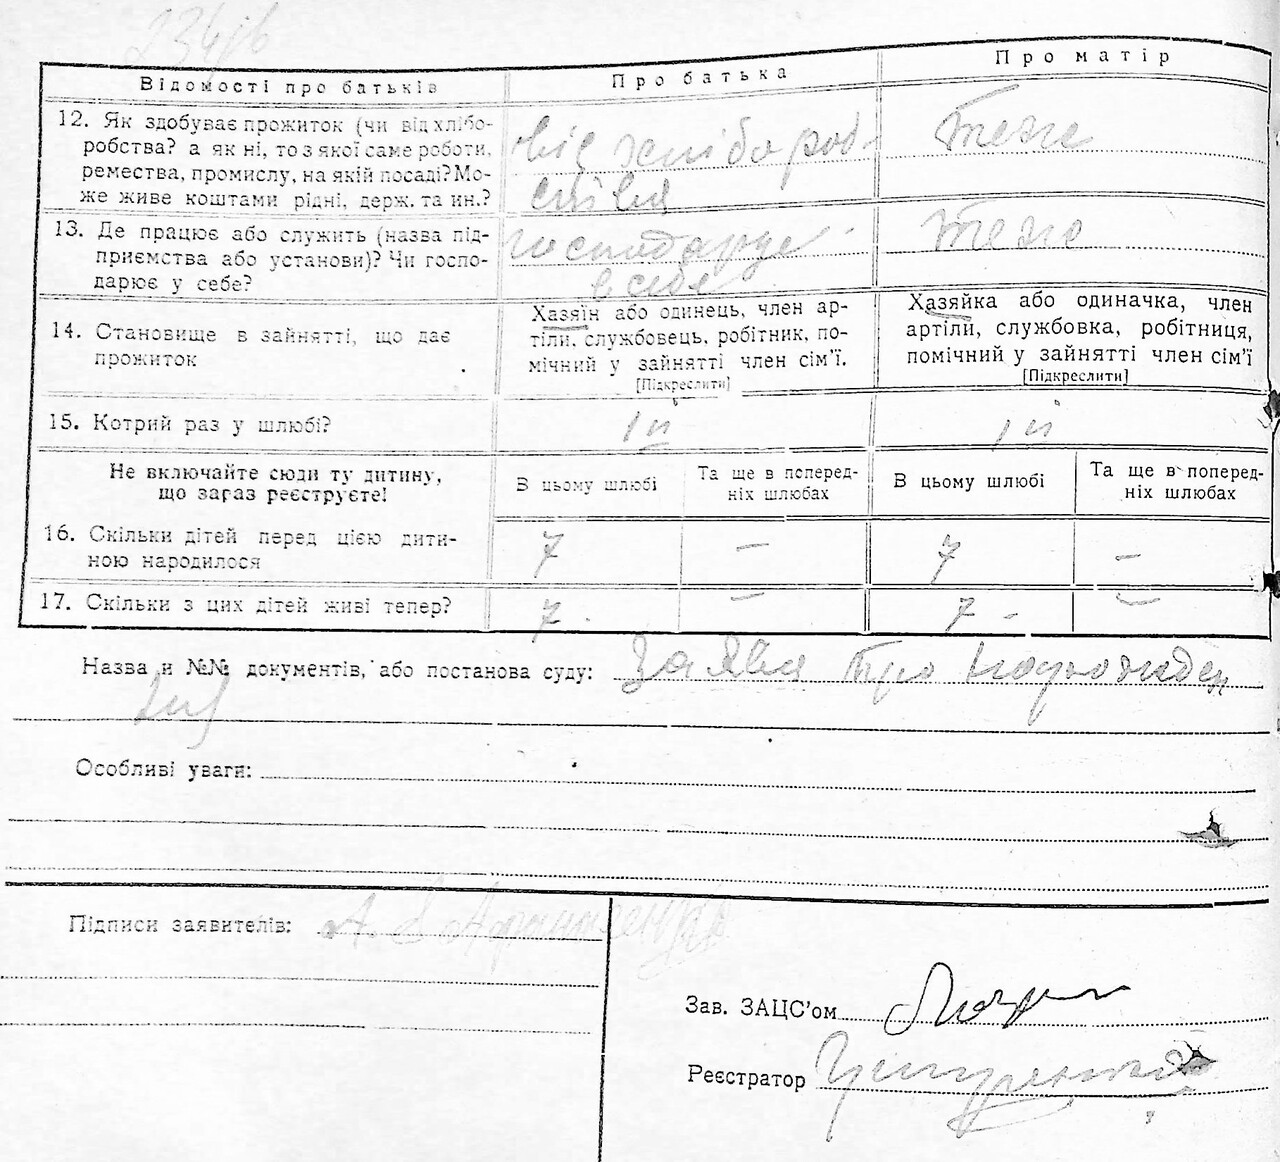 234/б
Відомості про батьків
Про батька
Про матір
12. Як здобуває прожиток (чи від хлібо-
робства? а як ні, то з якої саме роботи,
ремества, промислу, на якій посаді? Мо-
же живе коштами рідні, держ. та ин.?
від хлібороб-
ства
теж
13. Де працює або служить (назва під-
приємства або установи)? Чи госпо-
дарює у себе?
господарює
в себе
теж
14. Становище в зайнятті, що дає
прожиток
Хазяїн або одинець, член ар-
тіли, службовець, робітник, по-
мічний у зайнятті член сім’ї.
[Підкреслити]
Хазяйка або одиначка, член
артіли, службовка, робітниця,
помічний у зайнятті член сім’ї
[Підкреслити]
15. Котрий раз у шлюбі?
1й
1й
Не включайте сюди ту дитину,
що зараз реєструєте!
В цьому шлюбі
Та ще в поперед-
ніх шлюбах
В цьому шлюбі
Та ще в поперед-
ніх шлюбах
16. Скільки дітей перед цією дити-
ною народилося
7
—
7
—
17. Скільки з цих дітей живі тепер?
7.
—
7 -
—
Назва и №№ документів, або постанова суду: заява про
Особливі уваги:
Підписи заявителів: А.
Зав. ЗАЦС’ом
Реєстратор